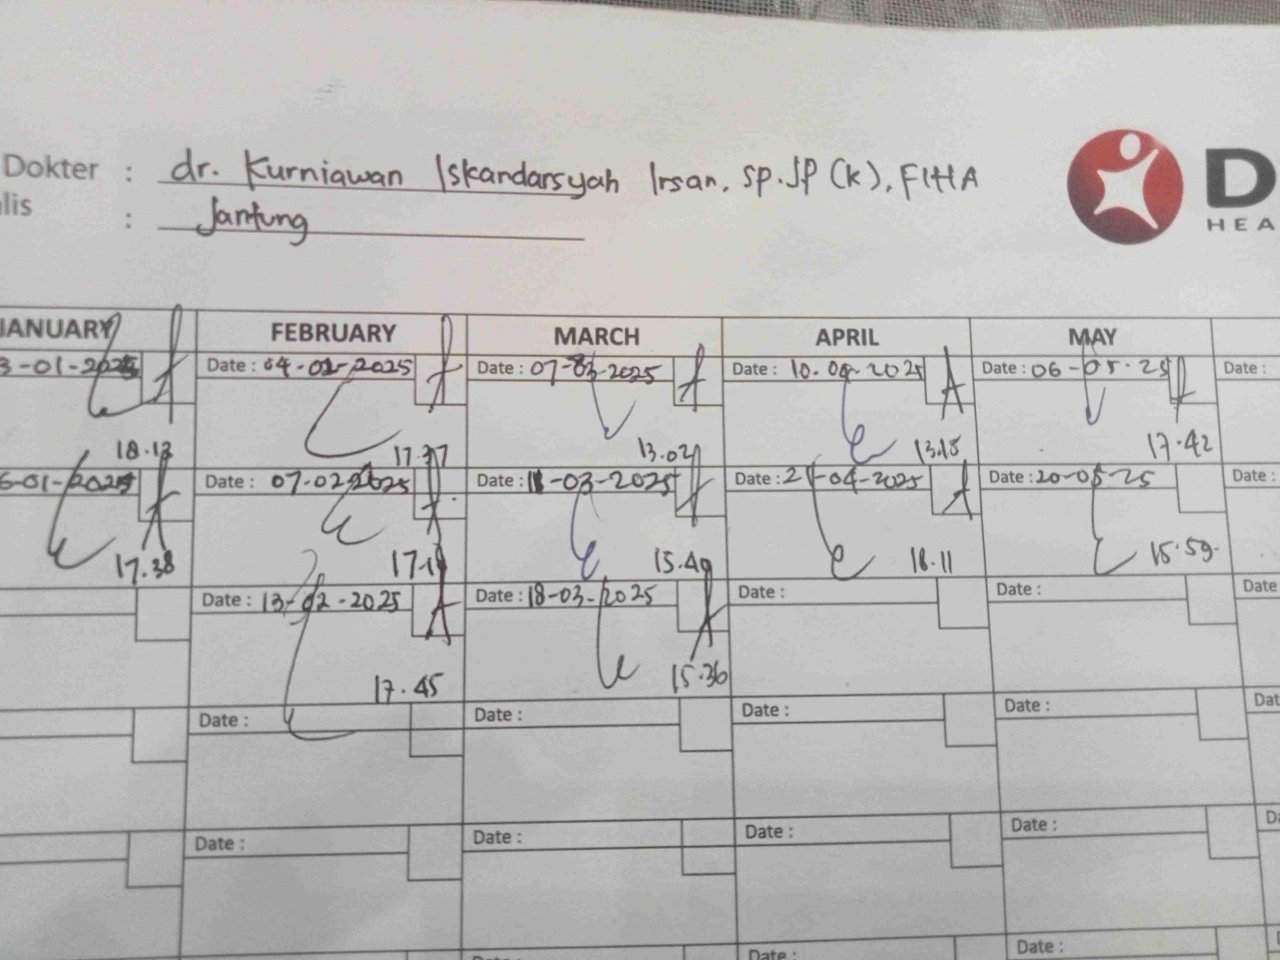 Dokter : dr. Kurniawan Iskandarsyah Irsan, Sp.JP (K), FIHA
lis : Jantung
D
HEA
JANUARY FEBRUARY MARCH APRIL MAY
3-01-2025 Date : 04-02-2025 Date : 07-03-2025 Date : 10.04-2025 Date : 06-05-25 Date :
18.13 13.02 13.18 17.42
6-01-2025 Date : 07-02-2025 Date : 11-03-2025 Date : -04-2025 Date : 20-05-25 Date :
17.38 15.49 18.11 15.59.
Date : 13-02-2025 Date : 18-03-2025 Date : Date : Date
17.45 15.36
Date : Date : Date : Date : Dat
Date : Date : Date : Date : Da
Date : Date :